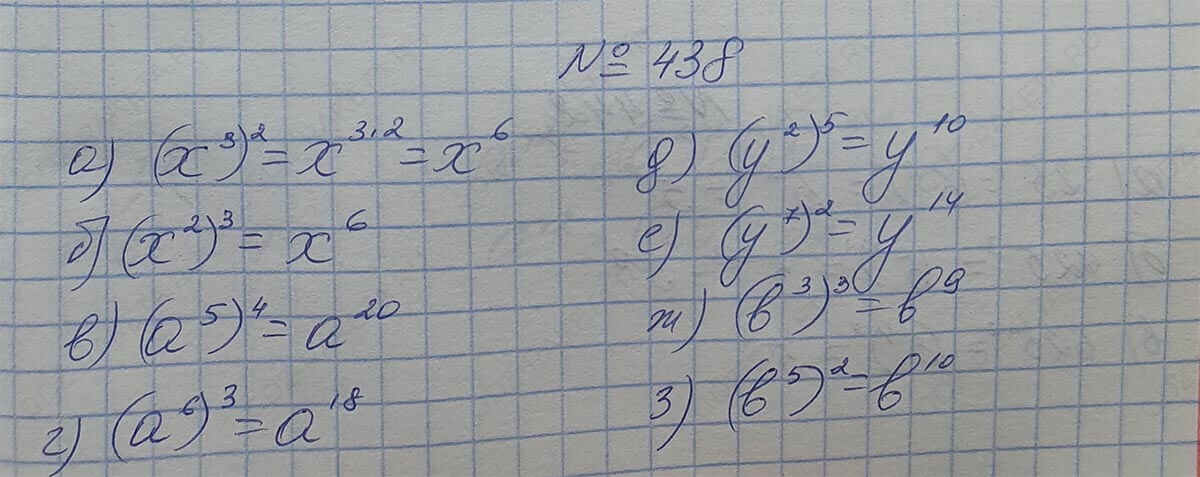 № 438
а) (x³)² = x³·² = x⁶
б) (x²)³ = x⁶
в) (a⁵)⁴ = a²⁰
г) (a⁶)³ = a¹⁸
д) (y²)⁵ = y¹⁰
е) (y⁷)² = y¹⁴
ж) (b³)³ = b⁹
з) (b⁵)² = b¹⁰